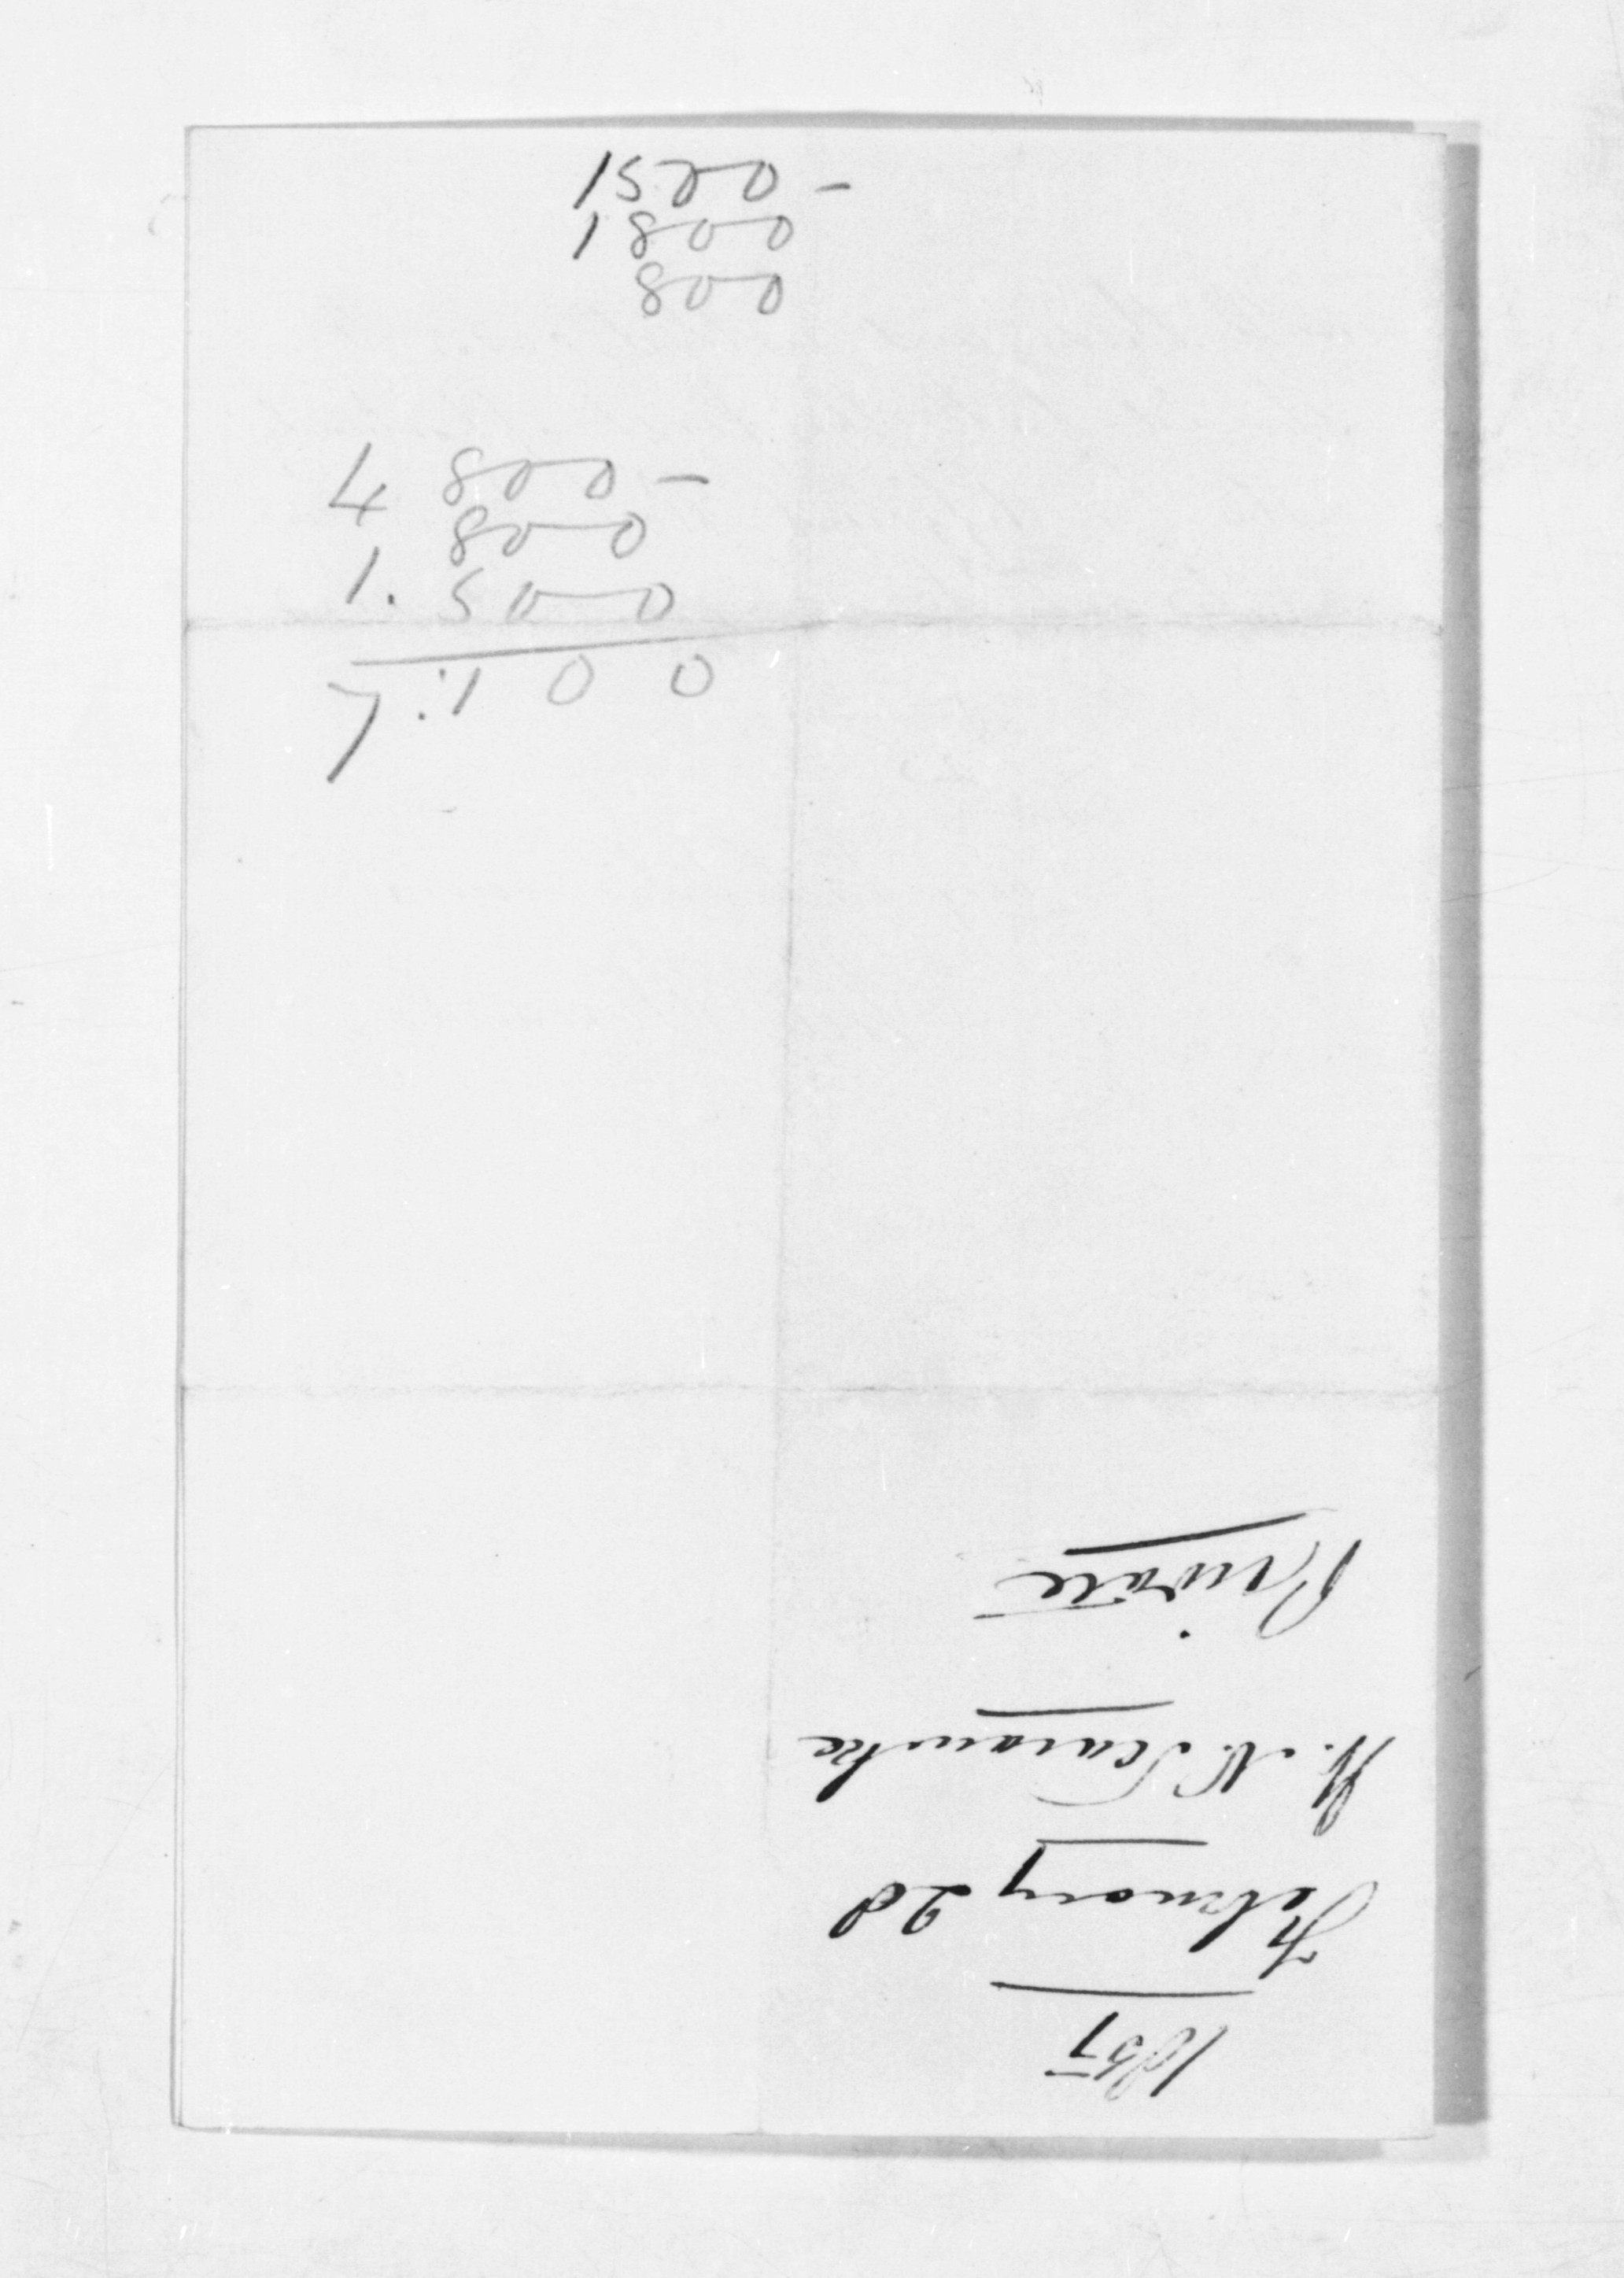 1500 -
1800
800
4 800 -
800
1. 500
7.100
1857
February 28
Private